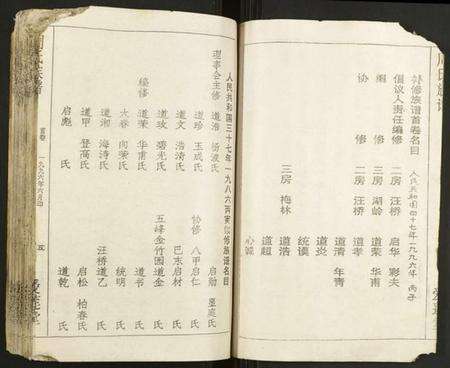 周氏族谱
补修族谱首卷名目
人民共和国四十七年一九九六年 丙子
倡议人责任编修 二房 汪桥 启华 彩夫
编 修 三房 湖岭 道荣 华甫
协 修 二房 汪桥 道孝
道清 年青
道炎
统谟
三房 梅林 道浩
道超
心诚
人民共和国三十七年一九八六丙寅 修族谱名目
理事会主修 道浩 杨波氏
道珍 玉成氏
道文 浩清氏
道玫 碧光氏
编修 道荣 华甫氏
大春 向荣氏
道湘 海涛氏
道甲 登高氏
启彪 氏
启勋 星庭氏
协修 八甲启仁 氏
巴东启材 氏
五峰金竹园道金 氏
道书 氏
统明 氏
汪桥道乙 氏
启松 柏春氏
道乾 氏
首卷
一九九六年六月印
五